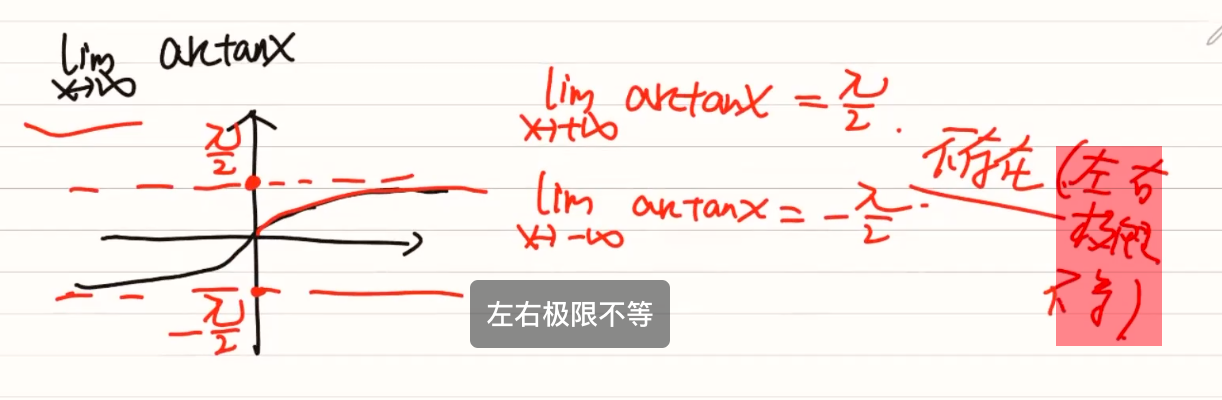 lim arctanx
x→∞
π/2
-π/2
lim arctanx = π/2.
x→+∞
lim arctanx = -π/2.
x→-∞
不存在(左右
极限
不等)
左右极限不等